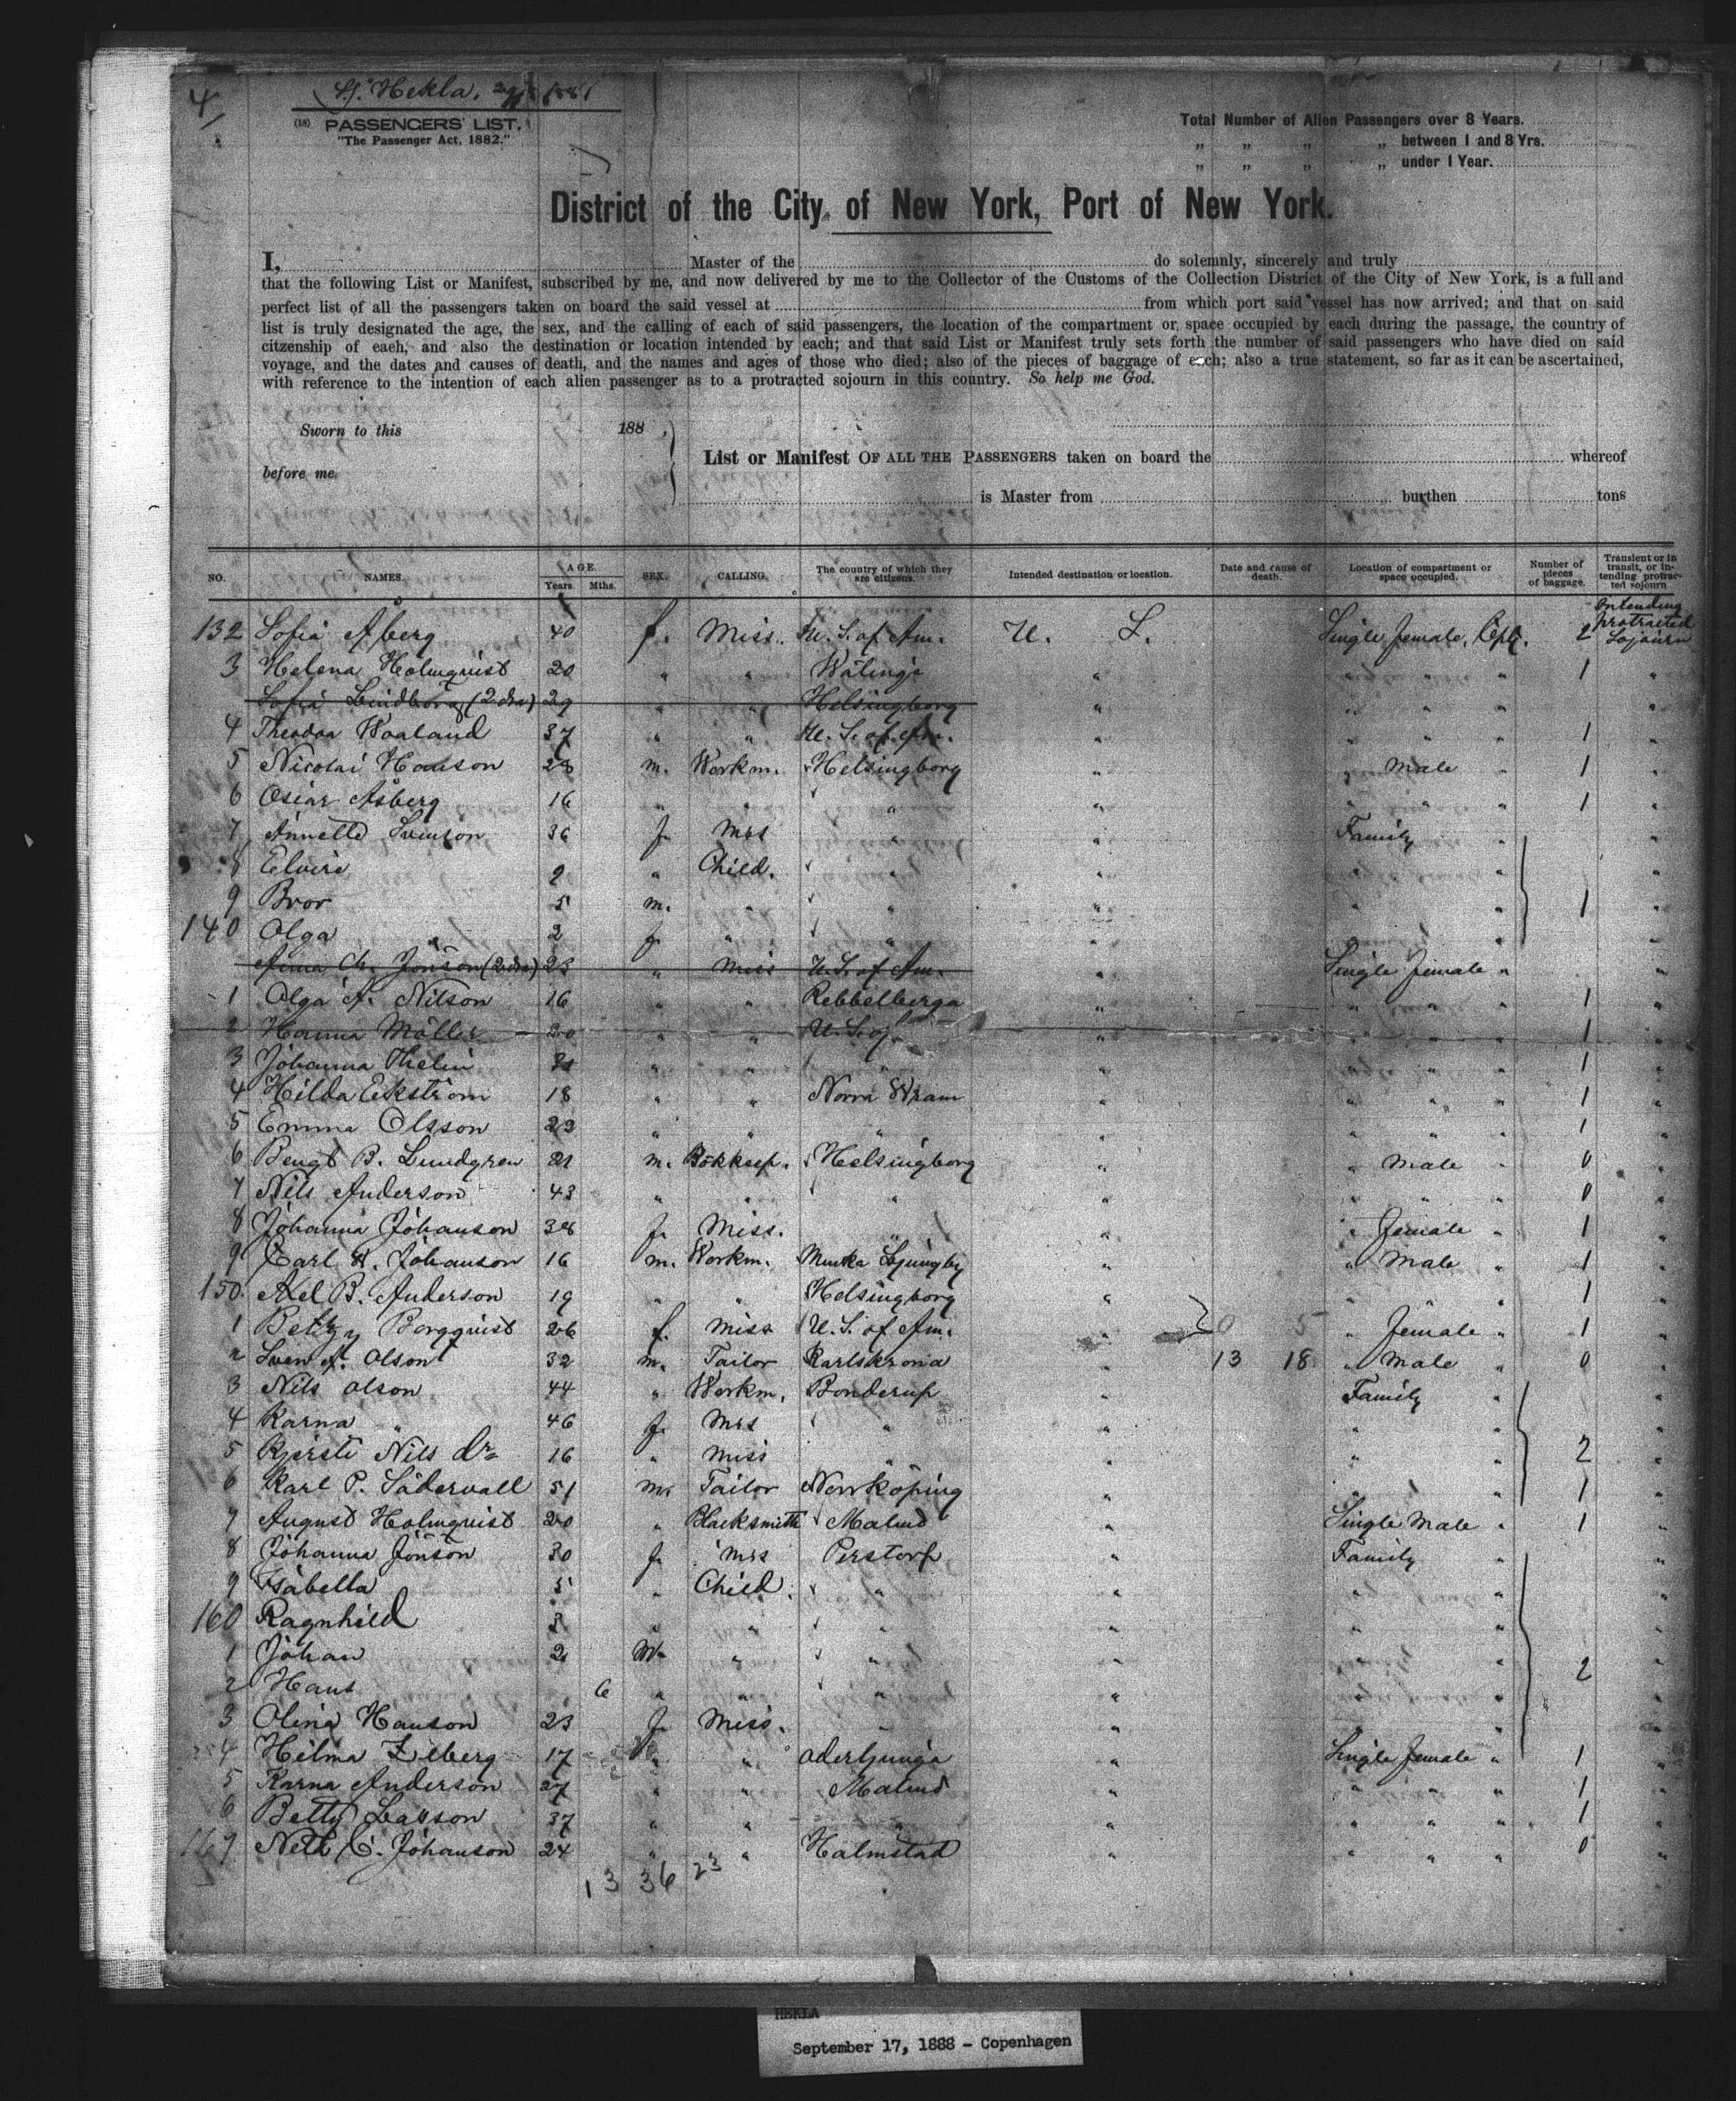 4/
SS. Hekla,
(18) PASSENGERS' LIST.
"The Passenger Act, 1882."
Total Number of Alien Passengers over 8 Years.
„ „ „ „ between 1 and 8 Yrs.
„ „ „ „ under 1 Year.
District of the City of New York, Port of New York.
I, Master of the do solemnly, sincerely and truly
that the following List or Manifest, subscribed by me, and now delivered by me to the Collector of the Customs of the Collection District of the City of New York, is a full and
perfect list of all the passengers taken on board the said vessel at from which port said vessel has now arrived; and that on said
list is truly designated the age, the sex, and the calling of each of said passengers, the location of the compartment or space occupied by each during the passage, the country of
citzenship of each, and also the destination or location intended by each; and that said List or Manifest truly sets forth the number of said passengers who have died on said
voyage, and the dates and causes of death, and the names and ages of those who died; also of the pieces of baggage of each; also a true statement, so far as it can be ascertained,
with reference to the intention of each alien passenger as to a protracted sojourn in this country. So help me God.
Sworn to this 188 ,
before me.
List or Manifest OF ALL THE PASSENGERS taken on board the whereof
is Master from burthen tons
NO. NAMES. AGE. Years. Mths. SEX. CALLING. The country of which they are citizens. Intended destination or location. Date and cause of death. Location of compartment or space occupied. Number of pieces of baggage. Transient or in transit, or intending protracted sojourn
132 Sofia Åberg 40 f. Miss. U.S. of Am. U. S. Single female, 2 Intending protracted Sojourn
3 Helena Holmquist 20 " " " " " " 1 "
Sofia (2 dra) 29 " " Helsingborg " " " " "
4 Theodor Waaland 37 " " U.S. of Am. " " " " 1 "
5 Nicolai Hanson 28 m. Workm. Helsingborg " " male " 1 "
6 Oscar Åsberg 16 " " " " " " " 1 "
7 Annette Svenson 36 f. Mrs " " Family " "
8 Elvira " Child. " " " " "
9 Bror 5 m. " " " " " 1 "
140 Olga 2 f. " " " " " "
Anna Ch. Jönson (2 dra) 23 " Miss U.S. of Am. " Single female " "
1 Olga A. Nilson 16 " " Rebbelberga " " " " 1 "
2 Hanna Möller 20 " " U.S. of " " " " 1 "
3 Johanna Thelin " " " " " " " 1 "
4 Hilda Ekström 18 " " Norra Wram " " " " 1 "
5 Emma Olsson " " " " " " " 1 "
6 Bengt B. Lundgren 21 m. Bokkeep. Helsingborg " " male " 0 "
7 Nils Anderson 43 " " " " " " " 0 "
8 Johanna Johanson 38 f. Miss. " " " female " 1 "
9 Carl W. Johanson 16 m. Workm. Munka Ljungby " " male " 1 "
150 Axel B. Anderson 19 " " Helsingborg " " " " 1 "
1 Betzy Borgquist 26 f. Miss U.S. of Am. " 0 5 " female " 1 "
2 Sven A. Olson 32 m. Tailor Karlskrona " 13 18 " male " 0 "
3 Nils Olson 44 " Workm. Bonderup " Family " "
4 Karna " 46 f. Mrs " " " " "
5 Kjersti Nils dr 16 " Miss " " " " 2 "
6 Karl P. Södervall 51 m. Tailor Norrköping " " " 1 "
7 August Holmquist 20 " Blacksmith Malmö " Single male " 1 "
8 Johanna Jönson 30 f. Mrs Perstorp " Family " "
9 Isabella 5 " Child. " " " " "
160 Ragnhild 3 " " " " " " "
1 Johan 2 M. " " " " " "
2 Hans 6 " " " " " " 2 "
3 Olina Hanson 23 f. Miss. " " " "
4 Hilma 17 " " Oderljunga " Single female " 1 "
5 Karna Anderson 27 " " Malmö " " " " 1 "
6 Betty Lasson 37 " " " " " " " 1 "
167 Johanson 24 " " Halmstad " " " " 0 "
13 36 23
HEKLA
September 17, 1888 - Copenhagen